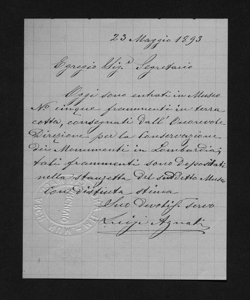 23 Maggio 1893
Egregio Sig.r Segretario
Oggi sono entrati in Museo
N.o cinque frammenti in terra
cotta, consegnati dall'Onorevole
Direzione per la Conservazione
dei Monumenti in Lombardia,
tali frammenti sono depositati
nella stanzetta del suddetto Museo
Con distinta stima
Suo Devotiss. Servo
Luigi Agnati